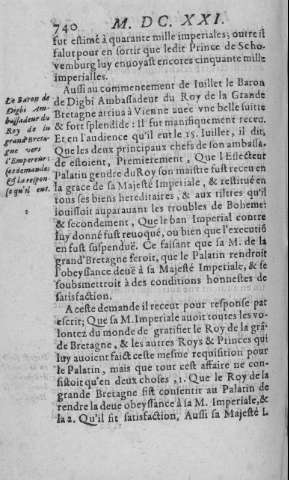 740 M. DC. XXI.
fut estimé à quarante mille imperiales, outre il
falut pour en sortir que ledit Prince de Scho-
vemburg luy enuoyast encores cinquante mille
imperialles.
Le Baron de
Digbi Am-
bassadeur du
Roy de la
grand'Breta-
gne vers
l'Empereur:
ses demandes
& la respon-
se qu'il eut.
Aussi au commencement de Iuillet le Baron
de Digbi Ambassadeur du Roy de la Grande
Bretagne arriua à Vienne auec vne belle suitte
& fort splendide: Il fut manifiquement receu.
Et en l'audience qu'il eut le 15. Iuillet, il dit,
Que les deux principaux chefs de son ambassa-
de estoient, Premierement, Que l'Eslecteur
Palatin gendre du Roy son maistre fust receu en
la grace de sa Majesté Imperiale, & restitué en
tous ses biens hereditaires, & aux tiltres qu'il
iouissoit auparauant les troubles de Boheme:
& secondement, Que le ban Imperial contre
luy donné fust reuoqué, ou bien que l'executiō
en fust suspenduë. Ce faisant que sa M. de la
grand'Bretagne feroit, que le Palatin rendroit
l'obeyssance deuë à sa Majesté Imperiale, & se
soubsmettroit à des conditions honnestes de
satisfaction.
A ceste demande il receut pour response par
escrit; Que sa M. Imperiale auoit toutes les vo-
lontez du monde de gratifier le Roy de la grā-
de Bretagne, & les autres Roys & Princes qui
luy auoient faict ceste mesme requisition pour
le Palatin, mais que tout cest affaire ne con-
sistoit qu'en deux choses, 1. Que le Roy de la
grande Bretagne fist consentir au Palatin de
rendre la deue obeyssance à sa M. Imperiale, &
la 2. Qu'il fit satisfaction, Aussi sa Majesté I.